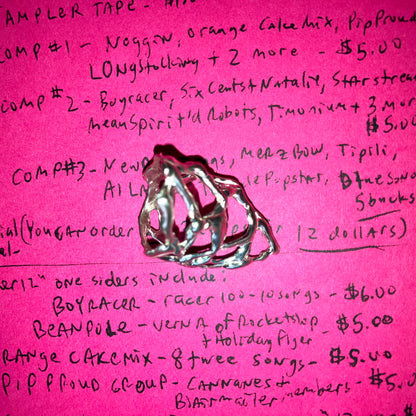 AMPLER TAPE -
COMP #1 - Noggin, orange Cake mix, PipProud
LONgstocking + 2 more - $5.00
comp #2 - Boyracer, Six Cents + Natalie, Star stream
meanSpirit'd Robots, Timonium + 3 mor
$5.00
COMP#3 - New gs, MERZBOW, Tipili,
Popstar,
5 bucks
ial (You can order 12 dollars)
al-
er 12" one siders include:
BOYRACER - racer 100 - 10 songs - $6.00
BEANPOLE - VERNA of Rocketship
+ Holiday Flyer - $5.00
RANGE CAKEMIX - 8 twee songs - $5.00
PIP PROUD GROUP - CANNANES +
Blairmailer members - $5.0